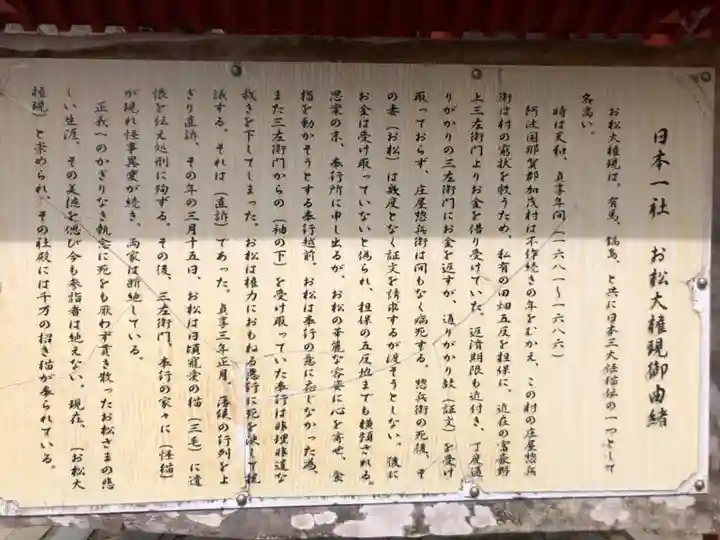 日本一社　お松大権現御由緒
お松大権現は、有馬、鍋島、と共に日本三大怪猫伝の一つとして
名高い。
時は天和、貞享年間（一六八一～一六八六）
阿波国那賀郡加茂村は不作続きの年をむかえ、この村の庄屋惣兵
衛は村の窮状を救うため、私有の田畑五反を担保に、近在の富豪野
上三左衛門よりお金を借り受けていた。返済期限も近付き、丁度通
りがかりの三左衛門にお金を返すが、通りがかり故（証文）を受け
取っておらず、庄屋惣兵衛は間もなく病死する。惣兵衛の死後、そ
の妻（お松）は幾度となく証文を請求するが渡そうとしない。彼に
お金は受け取っていないと偽られ、担保の五反地までも横領される。
思案の末、奉行所に申し出るが、お松の華麗な容姿に心を寄せ、食
指を動かそうとする奉行越前。お松は奉行の意に応じなかった為、
また三左衛門からの（袖の下）を受け取っていた奉行は非理非道な
裁きを下してしまった。お松は権力におもねる悪行に死を決して抗
議する。それは（直訴）であった。貞享三年正月、藩侯の行列をよ
ぎり直訴、その年の三月十五日、お松は日頃寵愛の猫（三毛）に遺
恨を伝え処刑に殉ずる。その後、三左衛門、奉行の家々に（怪猫）
が現れ怪事異変が続き、両家は断絶している。
正義へのかぎりなき執念に死をも厭わず貫き散ったお松さまの悲
しい生涯、その美徳を偲び今も参詣者は絶えない。現在、（お松大
権現）と崇められ、その社殿には千万の招き猫が奉られている。